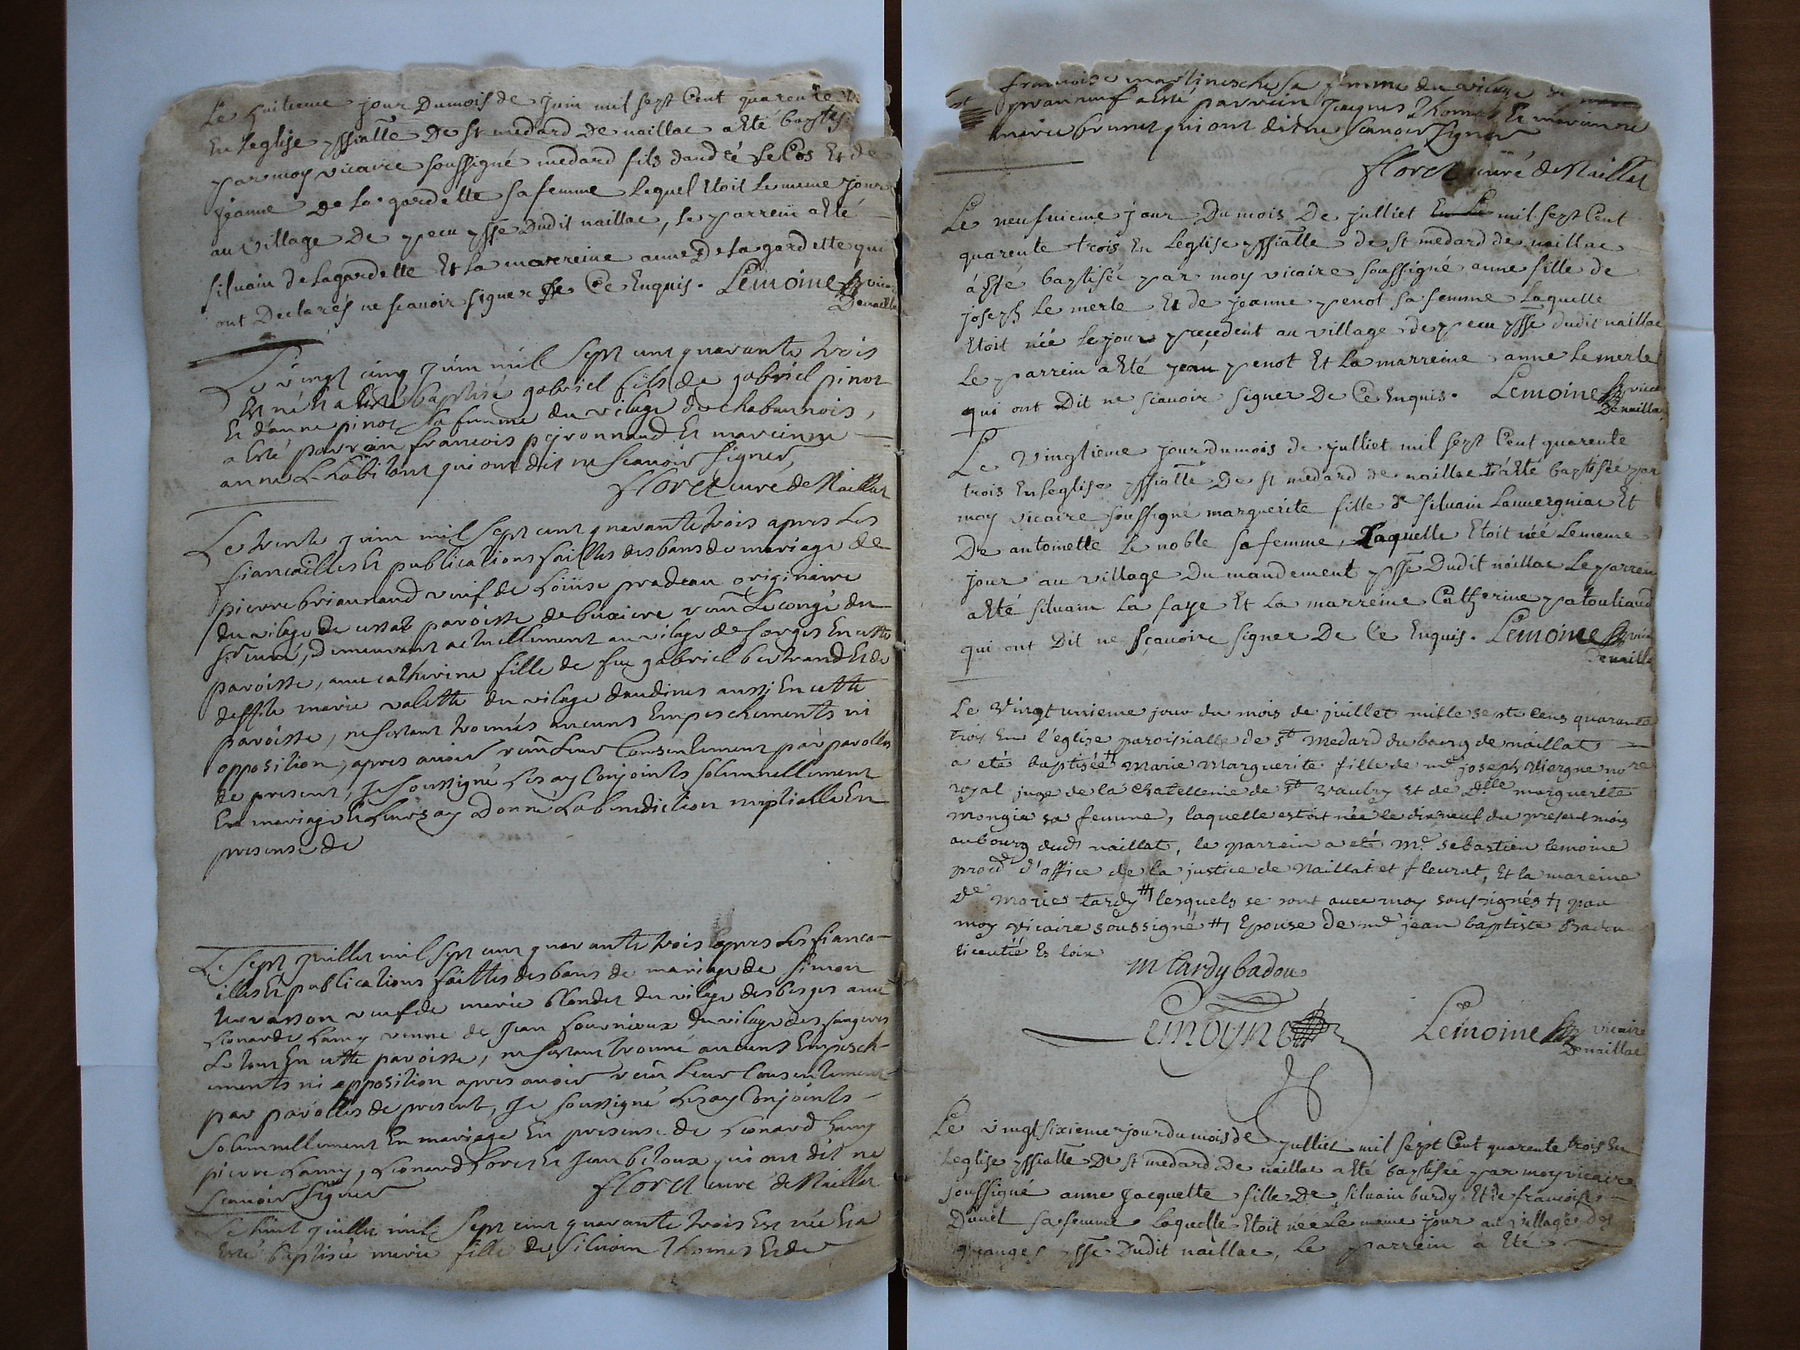 Le huitieme jour Dumois de juin mil sept Cent quarente
En Leglise pssialle De st medard de naillac a eté baptisé
par moy vicaire soussigné medard fils dandré Le Cos Et de
jeanne De La gardette sa femme Lequel Etoit Le meme jour
au village De peu psse Dudit naillac, Le parrein a eté
silvain de Lagardette Et la marreine anne De la gardette qui
ont Declarés ne scavoir signer De Ce Enquis. Lemoine vic
Denailla
Le vingt cinq juin mil sept cent quarante trois
Est né Et a esté baptisé gabriel fils de gabriel pinot
Et d'anne pinot sa femme du vilage de chabannois,
a esté parrain francois peyronnaud Et marienne
anne L'habitant qui ont dit ne scavoir signer,
floret curé de Naillat
Le trente juin mil sept cent quarante trois apres Les
fiancailles Et publications faittes des bans de mariage de
pierre briaunand veuf de Loüise pradeau originaire
du vilage de ussat paroisse de bussiere veu Le congé du
sr curé, demeurant actuellement au vilage de forges En cette
paroisse, avec catherine fille de feu gabriel bertrand Et de
deffte marie valette du vilage daudines aussi En cette
paroisse, ne sestant trouvés aucuns Empeschements ni
opposition, apres avoir receu Leur Consentement par parolles
de present, Je soussigné Les ay Conjoints solemnellement
En mariage Et Leurs ay Donné La benediction nuptialle En
presense de
Le sept juillet mil sept cent quarante trois apres Les fianca-
illes Et publications faittes des bans de mariage de simon
veuf de marie blondet du vilage des berges avec
Leonarde Lamy veuve de Jean fournioux du vilage des
Le tout En cette paroisse, ne sestant trouvé aucuns Empesch-
ements ni opposition apres avoir receu Leur Consentement
par parolles de present, Je soussigné Les ay Conjoints
solemnellement En mariage En presense de Leonard Lamy
pierre Lamy, Leonard floret Et Jean betoux qui ont dit ne
scavoir signer floret curé de Naillat
Le huit juillet mil sept cent quarante trois Est née Et a
Esté baptisée marie fille de silvain Thomas Et de
francoise sa femme du vilage de
a esté parrain Jacques Thomas Et marienne
marie brunet qui ont dit ne scavoir signer
floret curé de Naillat
Le neufvieme jour Du mois De juilliet En Le mil sept Cent
quarente trois En Leglise pssialle De st medard de naillac
a esté baptisée par moy vicaire soussigné anne fille de
joseph Le merle Et de jeanne penot sa femme Laquelle
Etoit née Le jour precedent au village de peu psse dudit naillac
Le parrein a Eté jean penot Et La marreine anne Le merle
qui ont Dit ne scavoir signer De Ce Enquis. Lemoine vicr
Denailla
Le vingtieme jour du mois de juilliet mil sept Cent quarente
trois En Leglise pssialle De st medard de naillac a Eté baptisée par
moy vicaire soussigné marguerite fille de silvain Lauvergniac Et
De antoinette Le noble sa femme, Laquelle Etoit née Le meme
jour au village Du mandement psse Dudit naillac Le parrein
a Eté silvain La faye Et La marreine Catherine patouliaud
qui ont Dit ne scavoire signer De Ce Enquis. Lemoine vicr
Denailla
Le Vingt unieme jour du mois de juillet mille sept cens quarante
trois En l'eglise paroissialle de st medard du bourg de naillat
a eté baptisée marie marguerite fille de me joseph Niorgue nore
royal juge de la chatellenie de st vaulry et de dlle marguerite
mongie sa femme, laquelle estoit née le dixneuf du present mois
au bourg dudt naillat, le parrein a eté Mr. sebastien lemoine
procr d'office de la justice de Naillat et fleurat, Et la mareine
De marie tardy # lesquels se sont avec moy soussignés par
moy vicaire soussigné # Epouse de mr jean baptiste Badou
licentié Es loix
M tardy badou
Lemoyne Lemoine vicaire
Denaillac
Le vingt sixieme jour du mois de juilliet mil sept Cent quarente trois En
Leglise pssialle De st medard De naillac a Eté baptisée par moy vicaire
soussigné anne jacquette fille De silvain burdy Et de francoise
Duvet sa femme Laquelle Etoit née Le meme jour au village des
granges psse Dudit naillac, Le parrein a Eté